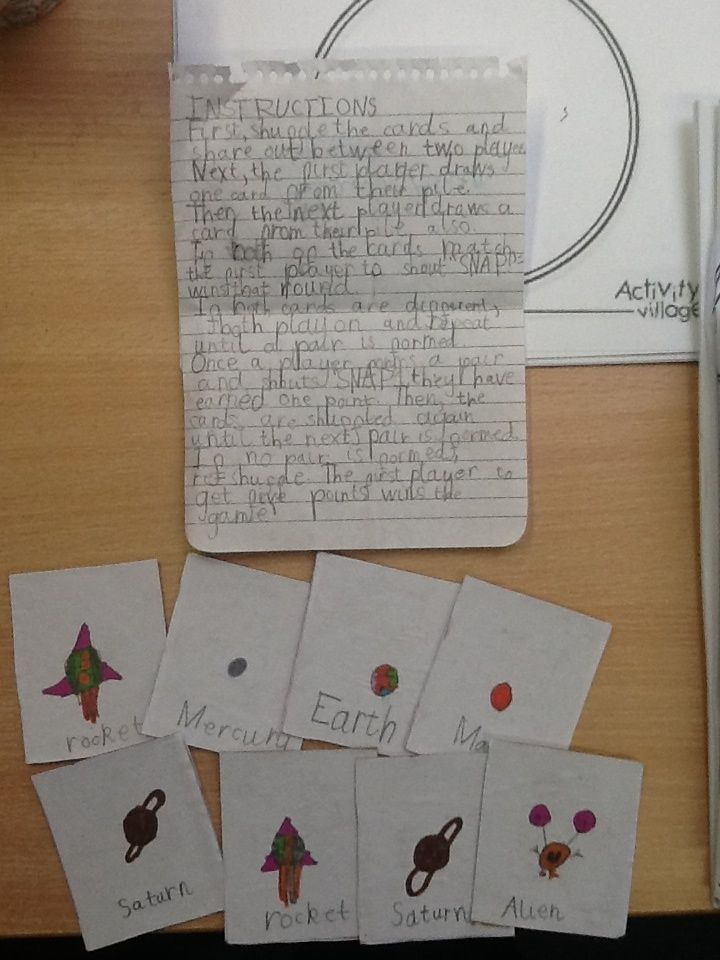 INSTRUCTIONS
First, shuffle the cards and
share out between two player
Next, the first player draws
one card from their pile.
Then the next player draws a
card from their pile, also.
If both of the cards match,
the first player to shout "SNAP!"
wins that round.
If both cards are different,
both play on and repeat
until a pair is formed.
Once a player a pair
and shouts SNAP! they have
earned one point. Then, the
cards are shuffled again
until the next pair is formed.
If no pair is formed,
reshuffle. The first player to
get five points wins the
game
Activity
village
rocket
Mercury
Earth
Ma
Saturn
rocket
Saturn
Alien